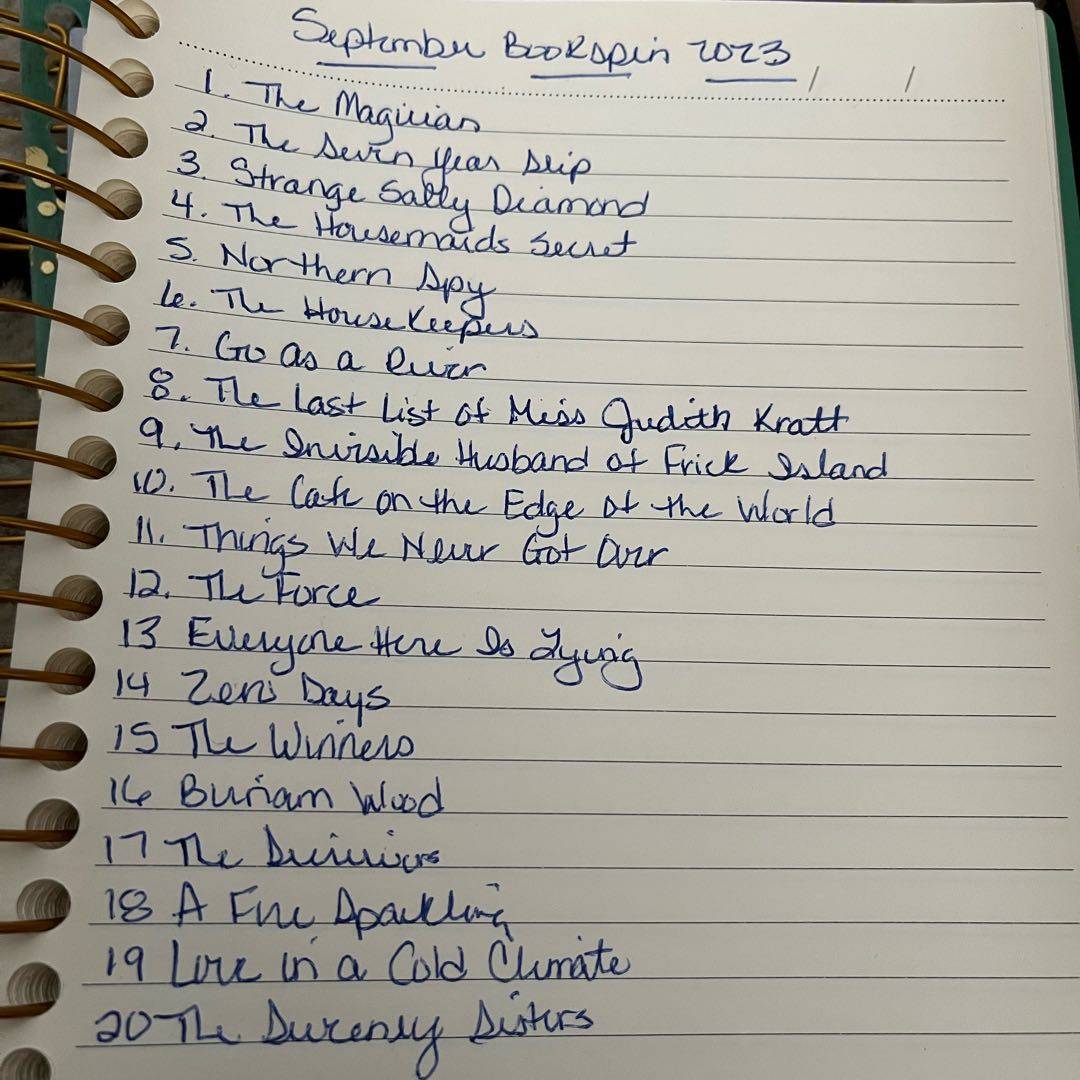 September BooKspin 2023 / /
1. The Magician
2. The Seven Year Slip
3. Strange Sally Diamond
4. The Housemaids Secret
5. Northern Spy
6. The HouseKeepers
7. Go as a River
8. The Last List of Miss Judith Kratt
9. The Invisible Husband of Frick Island
10. The Cafe on the Edge of the World
11. Things We Never Got Over
12. The Force
13 Everyone Here Is Lying
14 Zero Days
15 The Winners
16 Burnam Wood
17 The Survivors
18 A Fire Sparkling
19 Love in a Cold Climate
20 The Sweeney Sisters